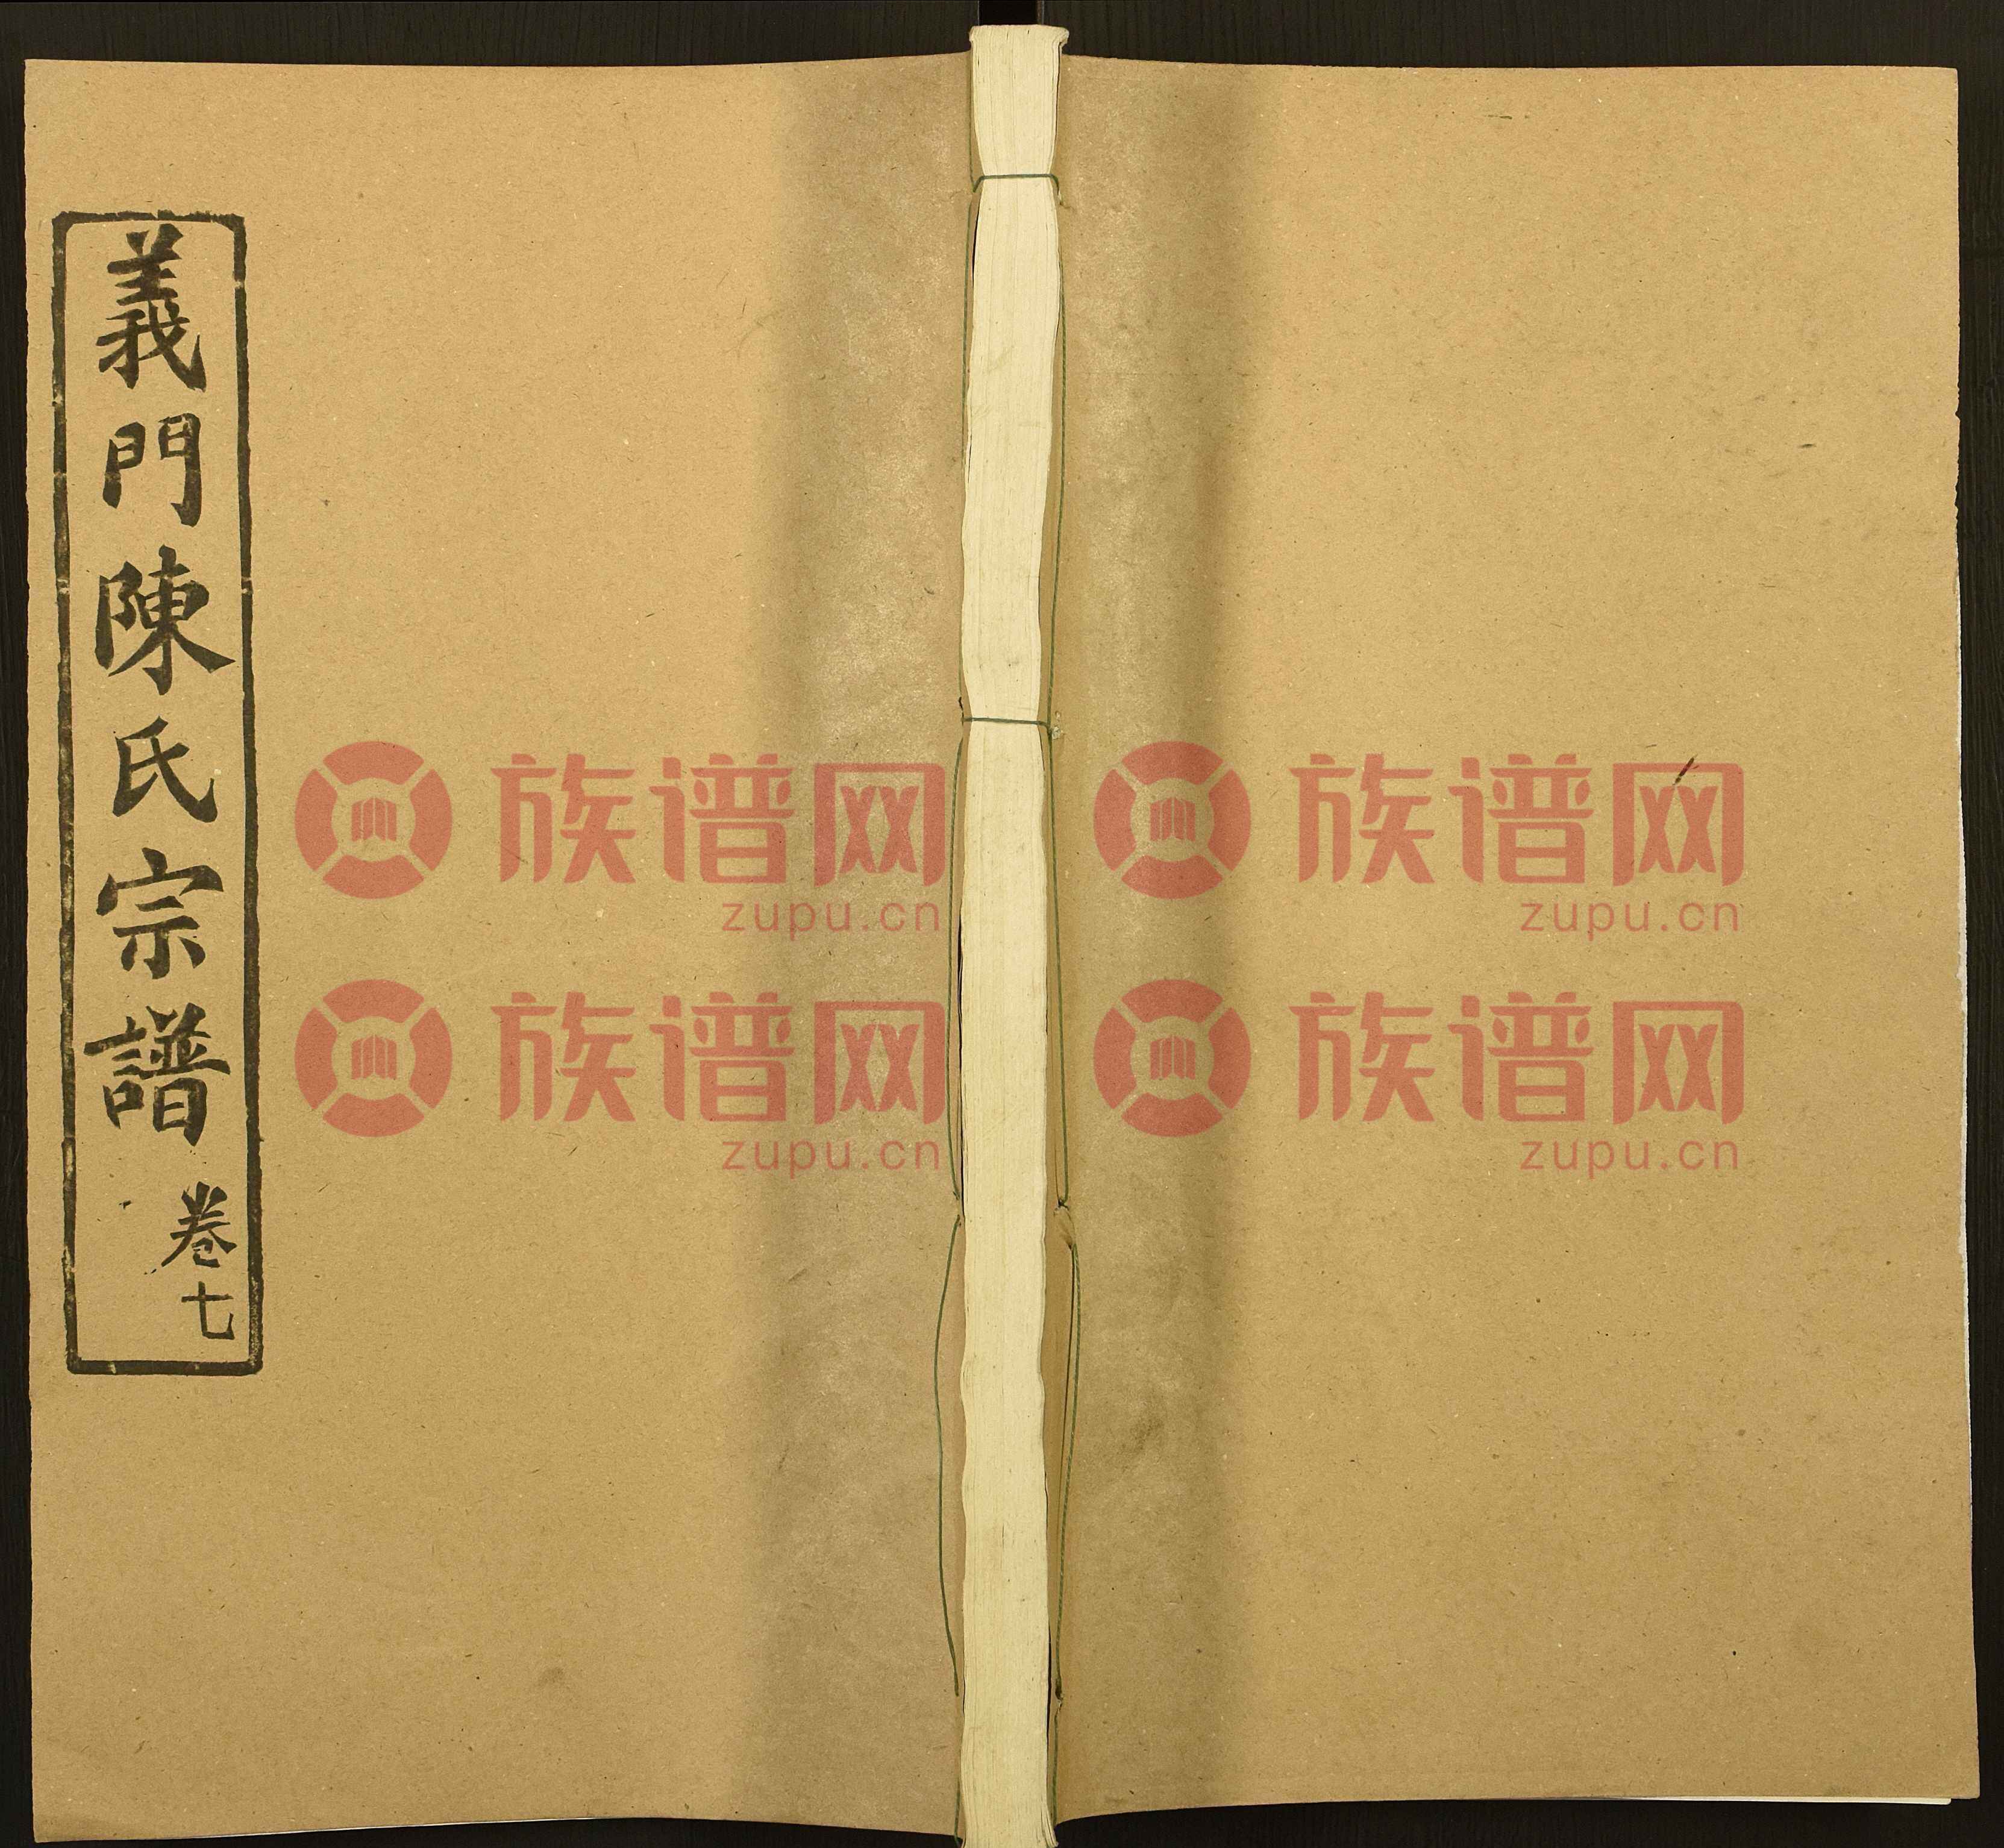 義門陳氏宗譜
卷七
族谱网
zupu.cn
族谱网
zupu.cn
族谱网
zupu.cn
族谱网
zupu.cn